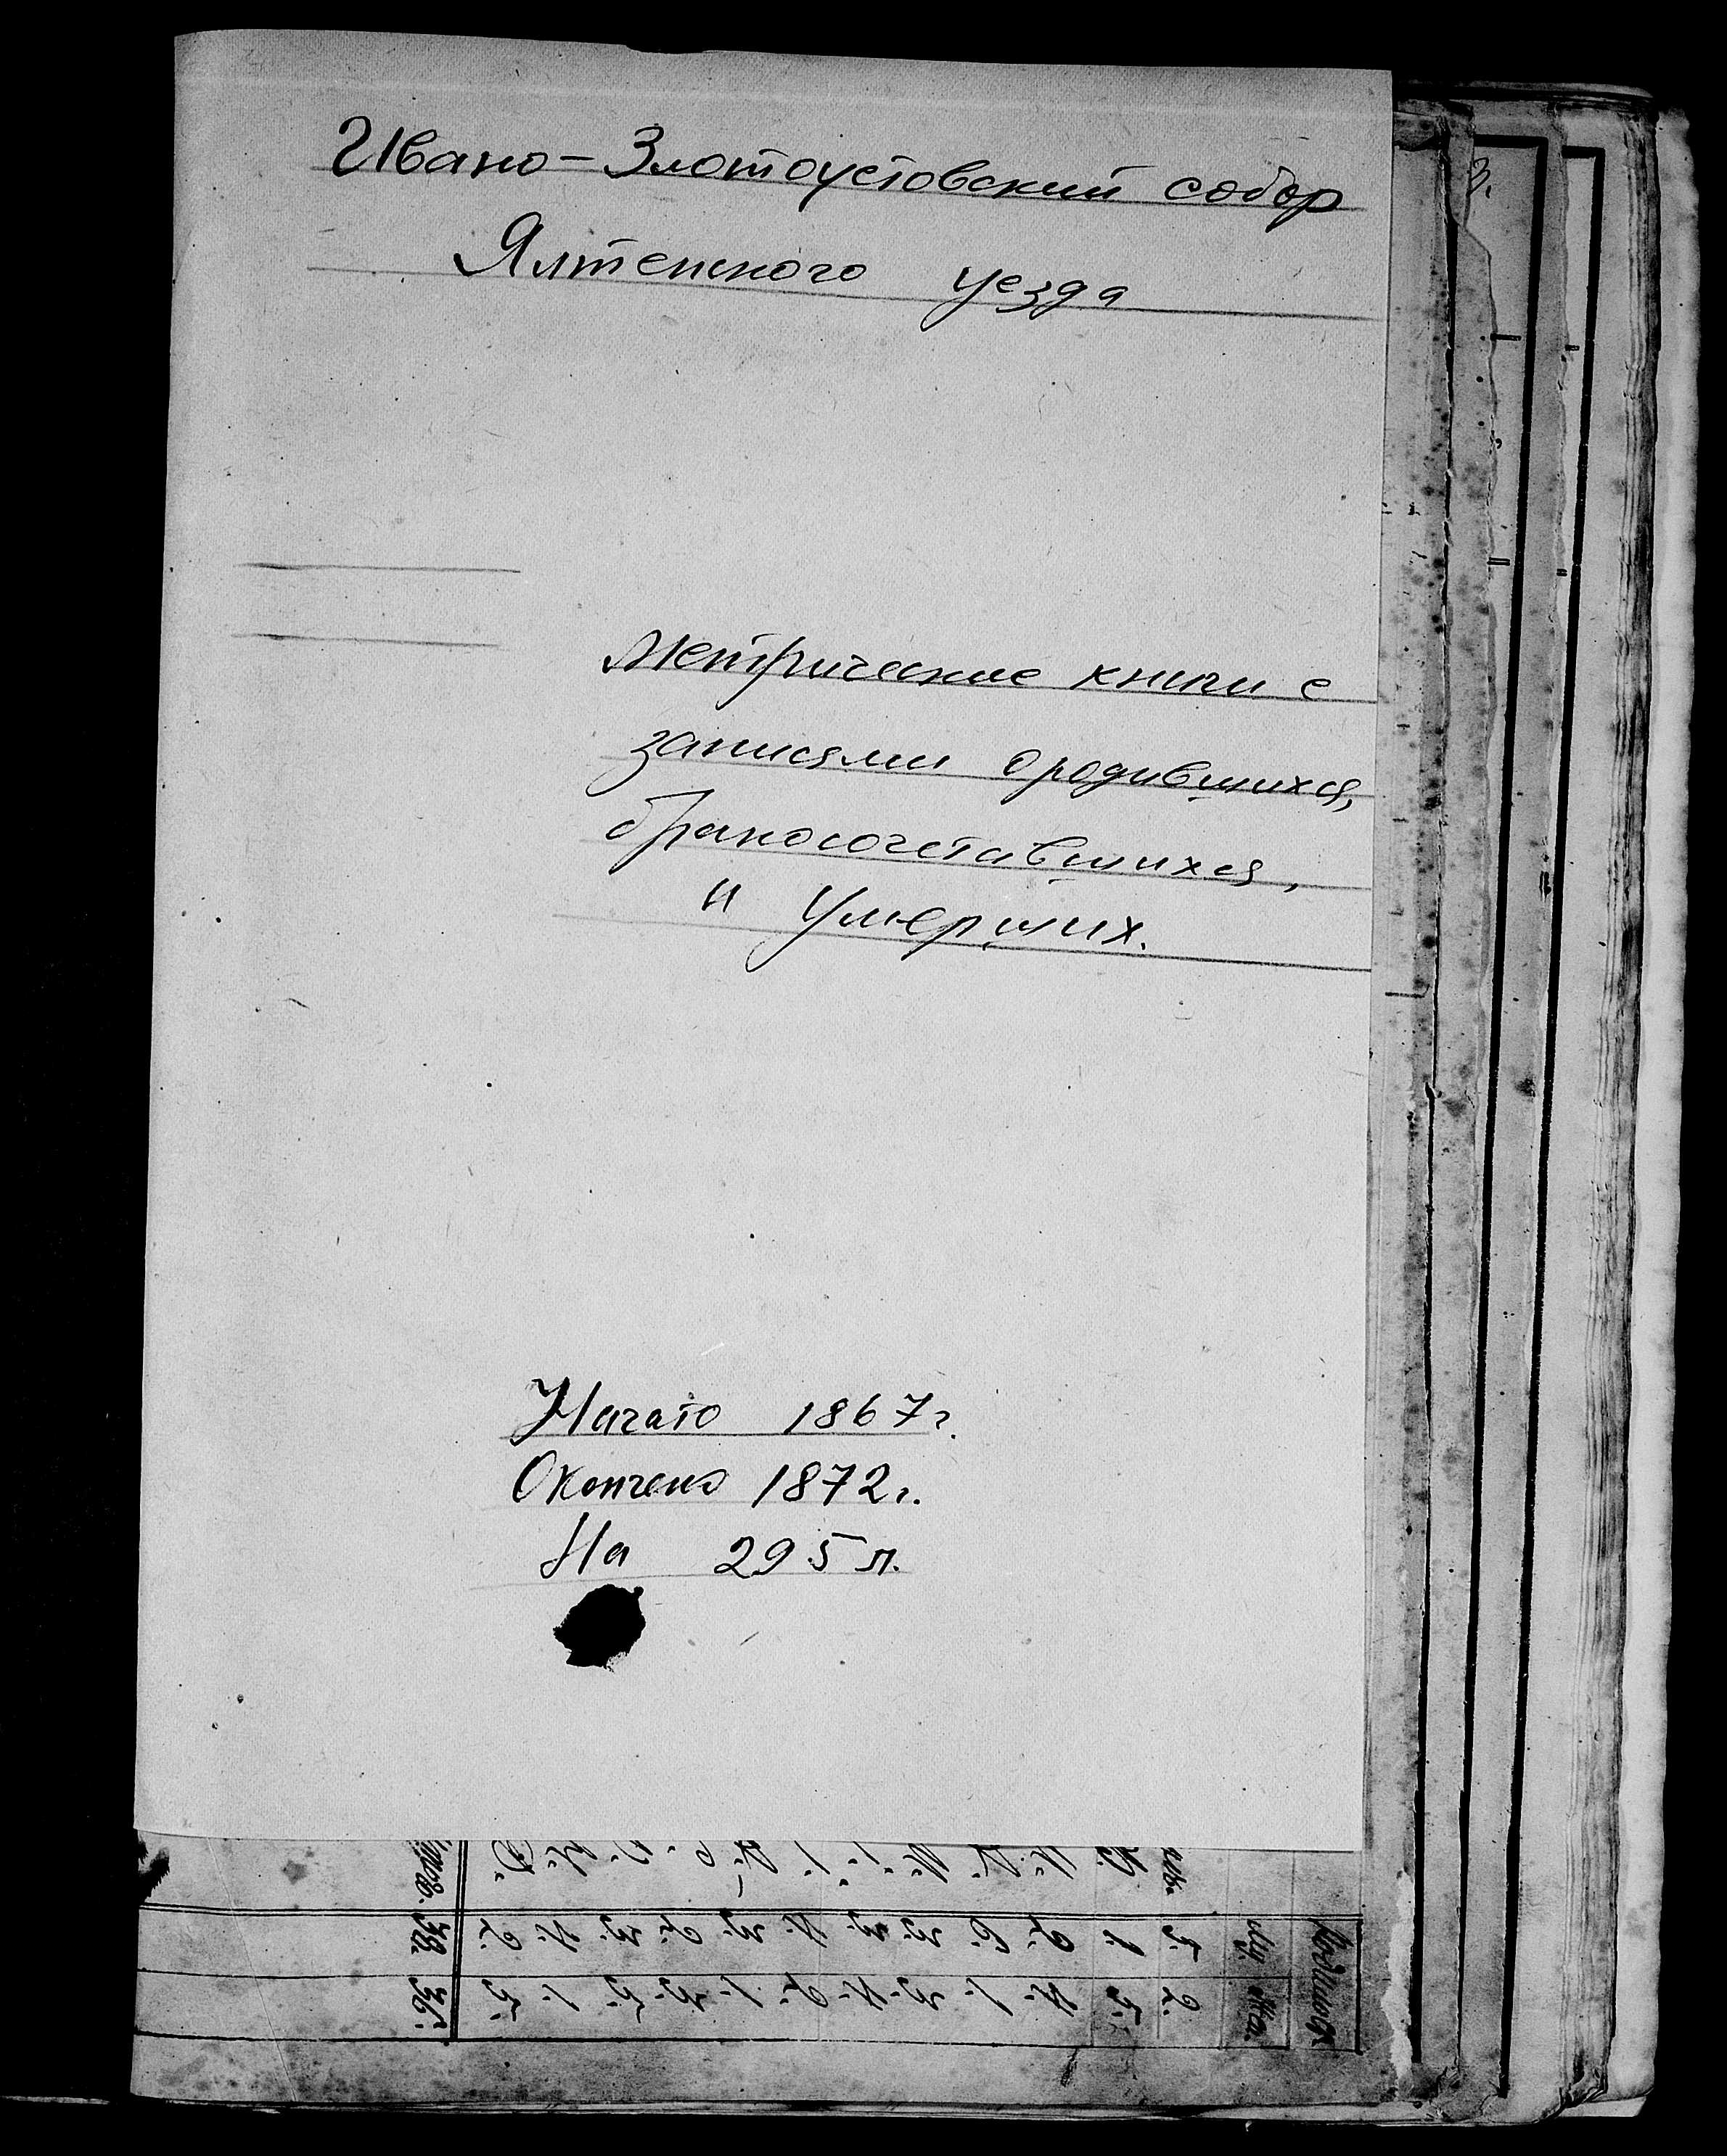 Ивано-Златоустовский собор
Ялтенского уезда
Метрические книги с
записями о родившихся,
бракосочетавшихся,
и умерших.
Начато 1867 г.
Окончено 1872 г.
На 295 л.
38.
36.